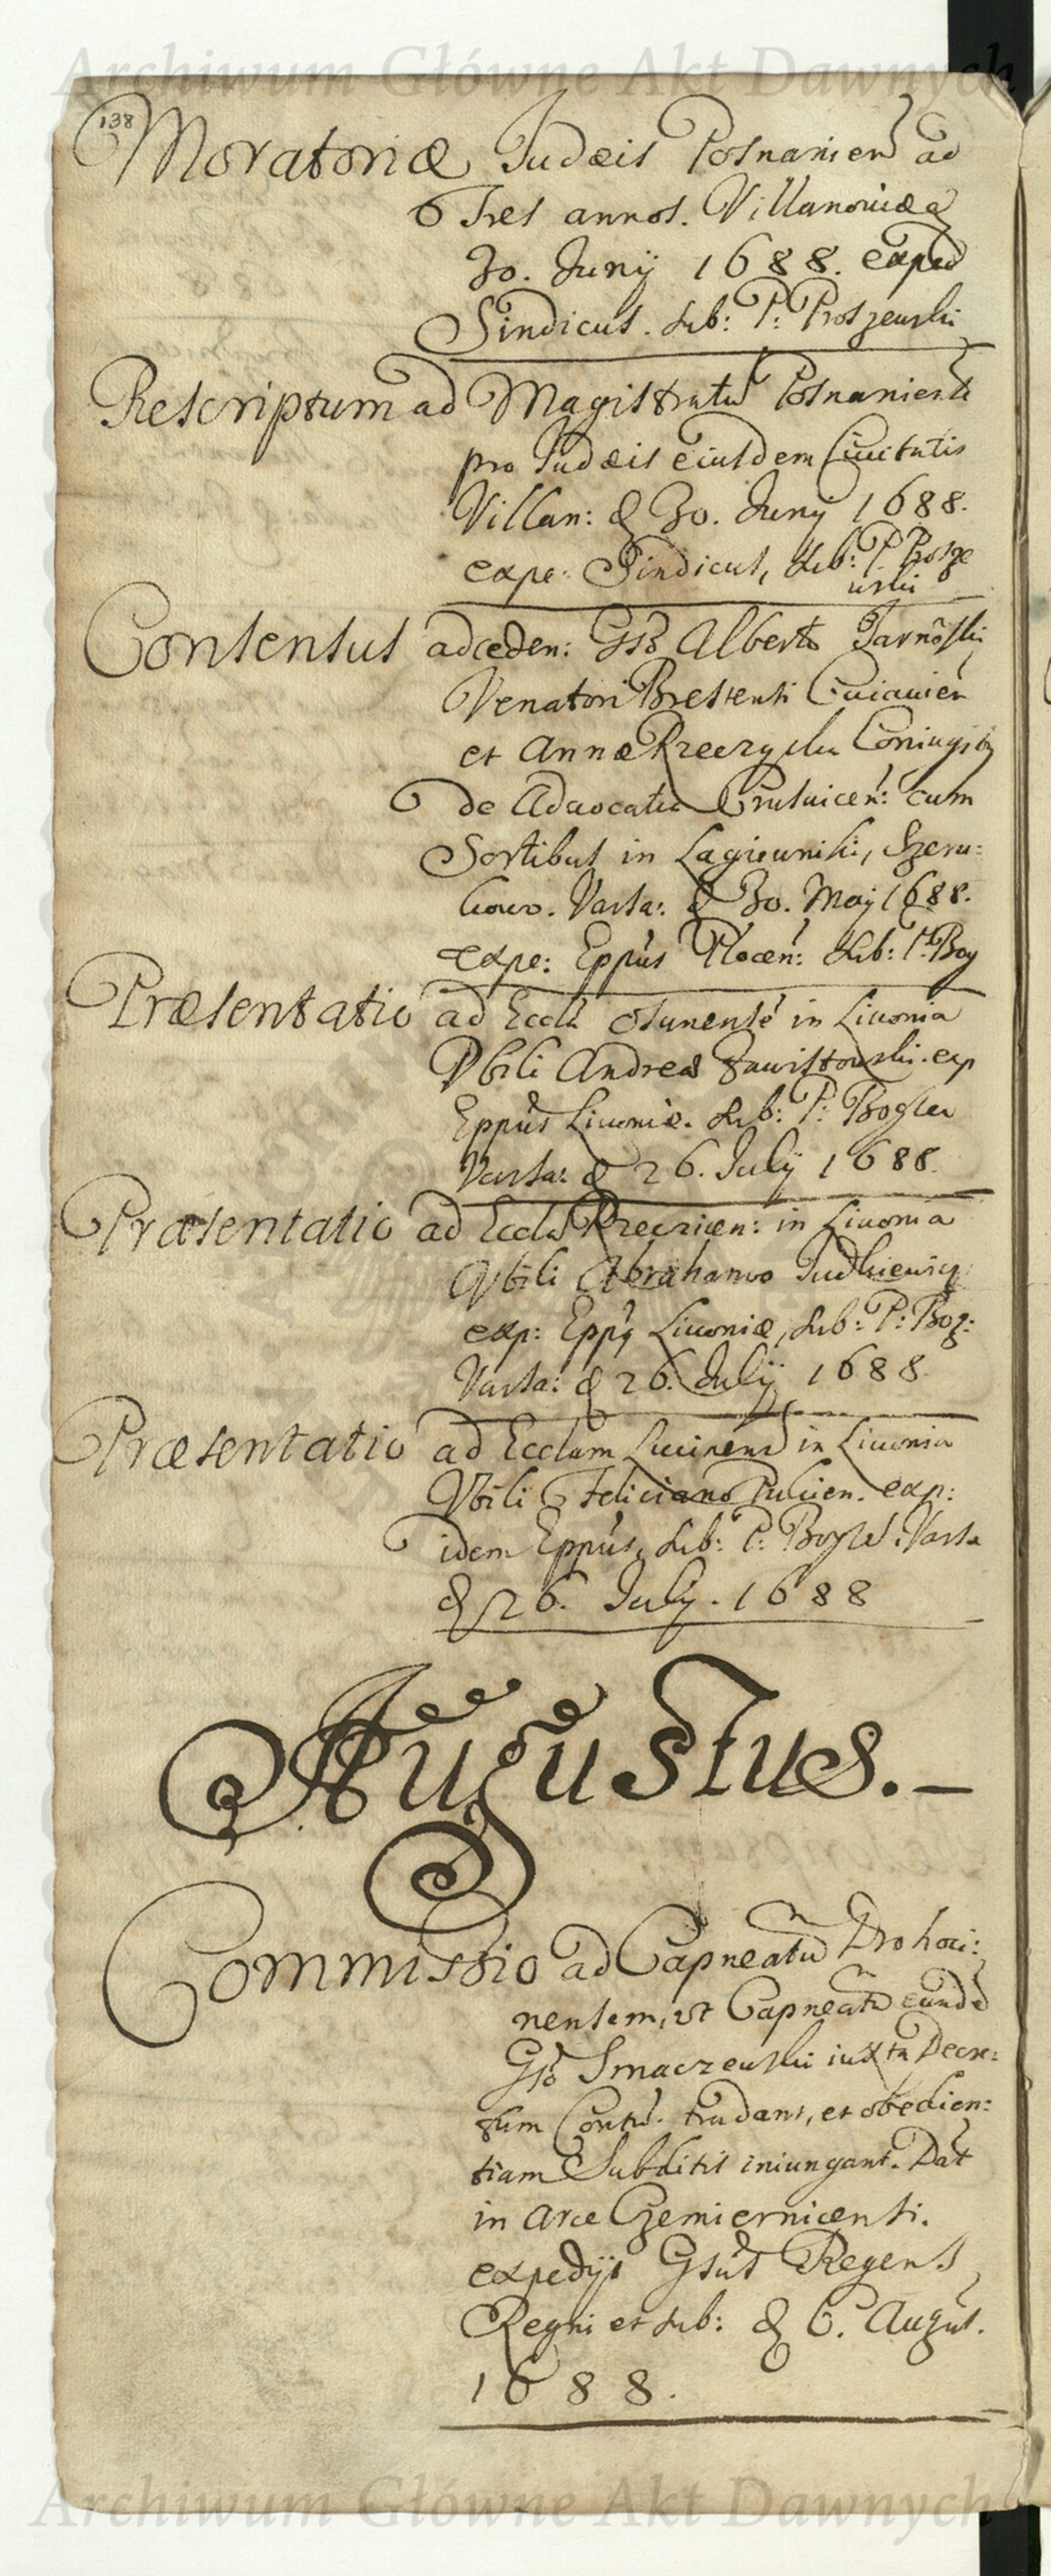 Archiwum Główne Akt Dawnych
138
Moratoriæ Judæis Posnanien ad
Tres annos. Villanoviæ
30. Junij 1688. exped
Sindicus. sub: P: Proszewski
Rescriptum ad Magistratu Posnaniense
pro Judæis eiusdem Civitatis
Villan: d 30. Junij 1688.
expe: Sindicus, sub: P: Prosze
wski
Consensus ad ceden: Gso Alberto Tarnoski
Venatori Brestensi Cuiavien
et Annæ Coniugib
de Advocatia cum
Sortibus in Lagiewniki, Szem:
kowo. Varsa: d 30. Maij 1688.
expe: Eppus Plocen: sub: P. Bog
Præsentatio ad Eccla Osunense in Livonia
Vbili Andreæ expEppus Livoniæ. sub: P: Bogsler
Varsa: d 26. Julij 1688.
Præsentatio ad Eccla in Livonia
Vbili Abrahamo Judkiewicz
exp: Eppq Livoniæ, sub: P: Bog:
Varsa: d 26. Julij 1688.
Præsentatio ad Ecclam Lucinens in Livonia
Vbili Feliciano exp:
idem Eppus, sub: P: Varsa
d 26. July. 1688
Augustus.
Commissio ad Capneatu Drohici:
nensem, vt Capneatu eunde
Gso Smaczewski iuxta Decre:
tum Contu. tradant, et obedien:
tiam Subditis iniungant. Dat
in Arce Czemiernicensi.
expedijt Gsus Regens
Regni et sub: d 6. August.
1688.
Archiwum Główne Akt Dawnych